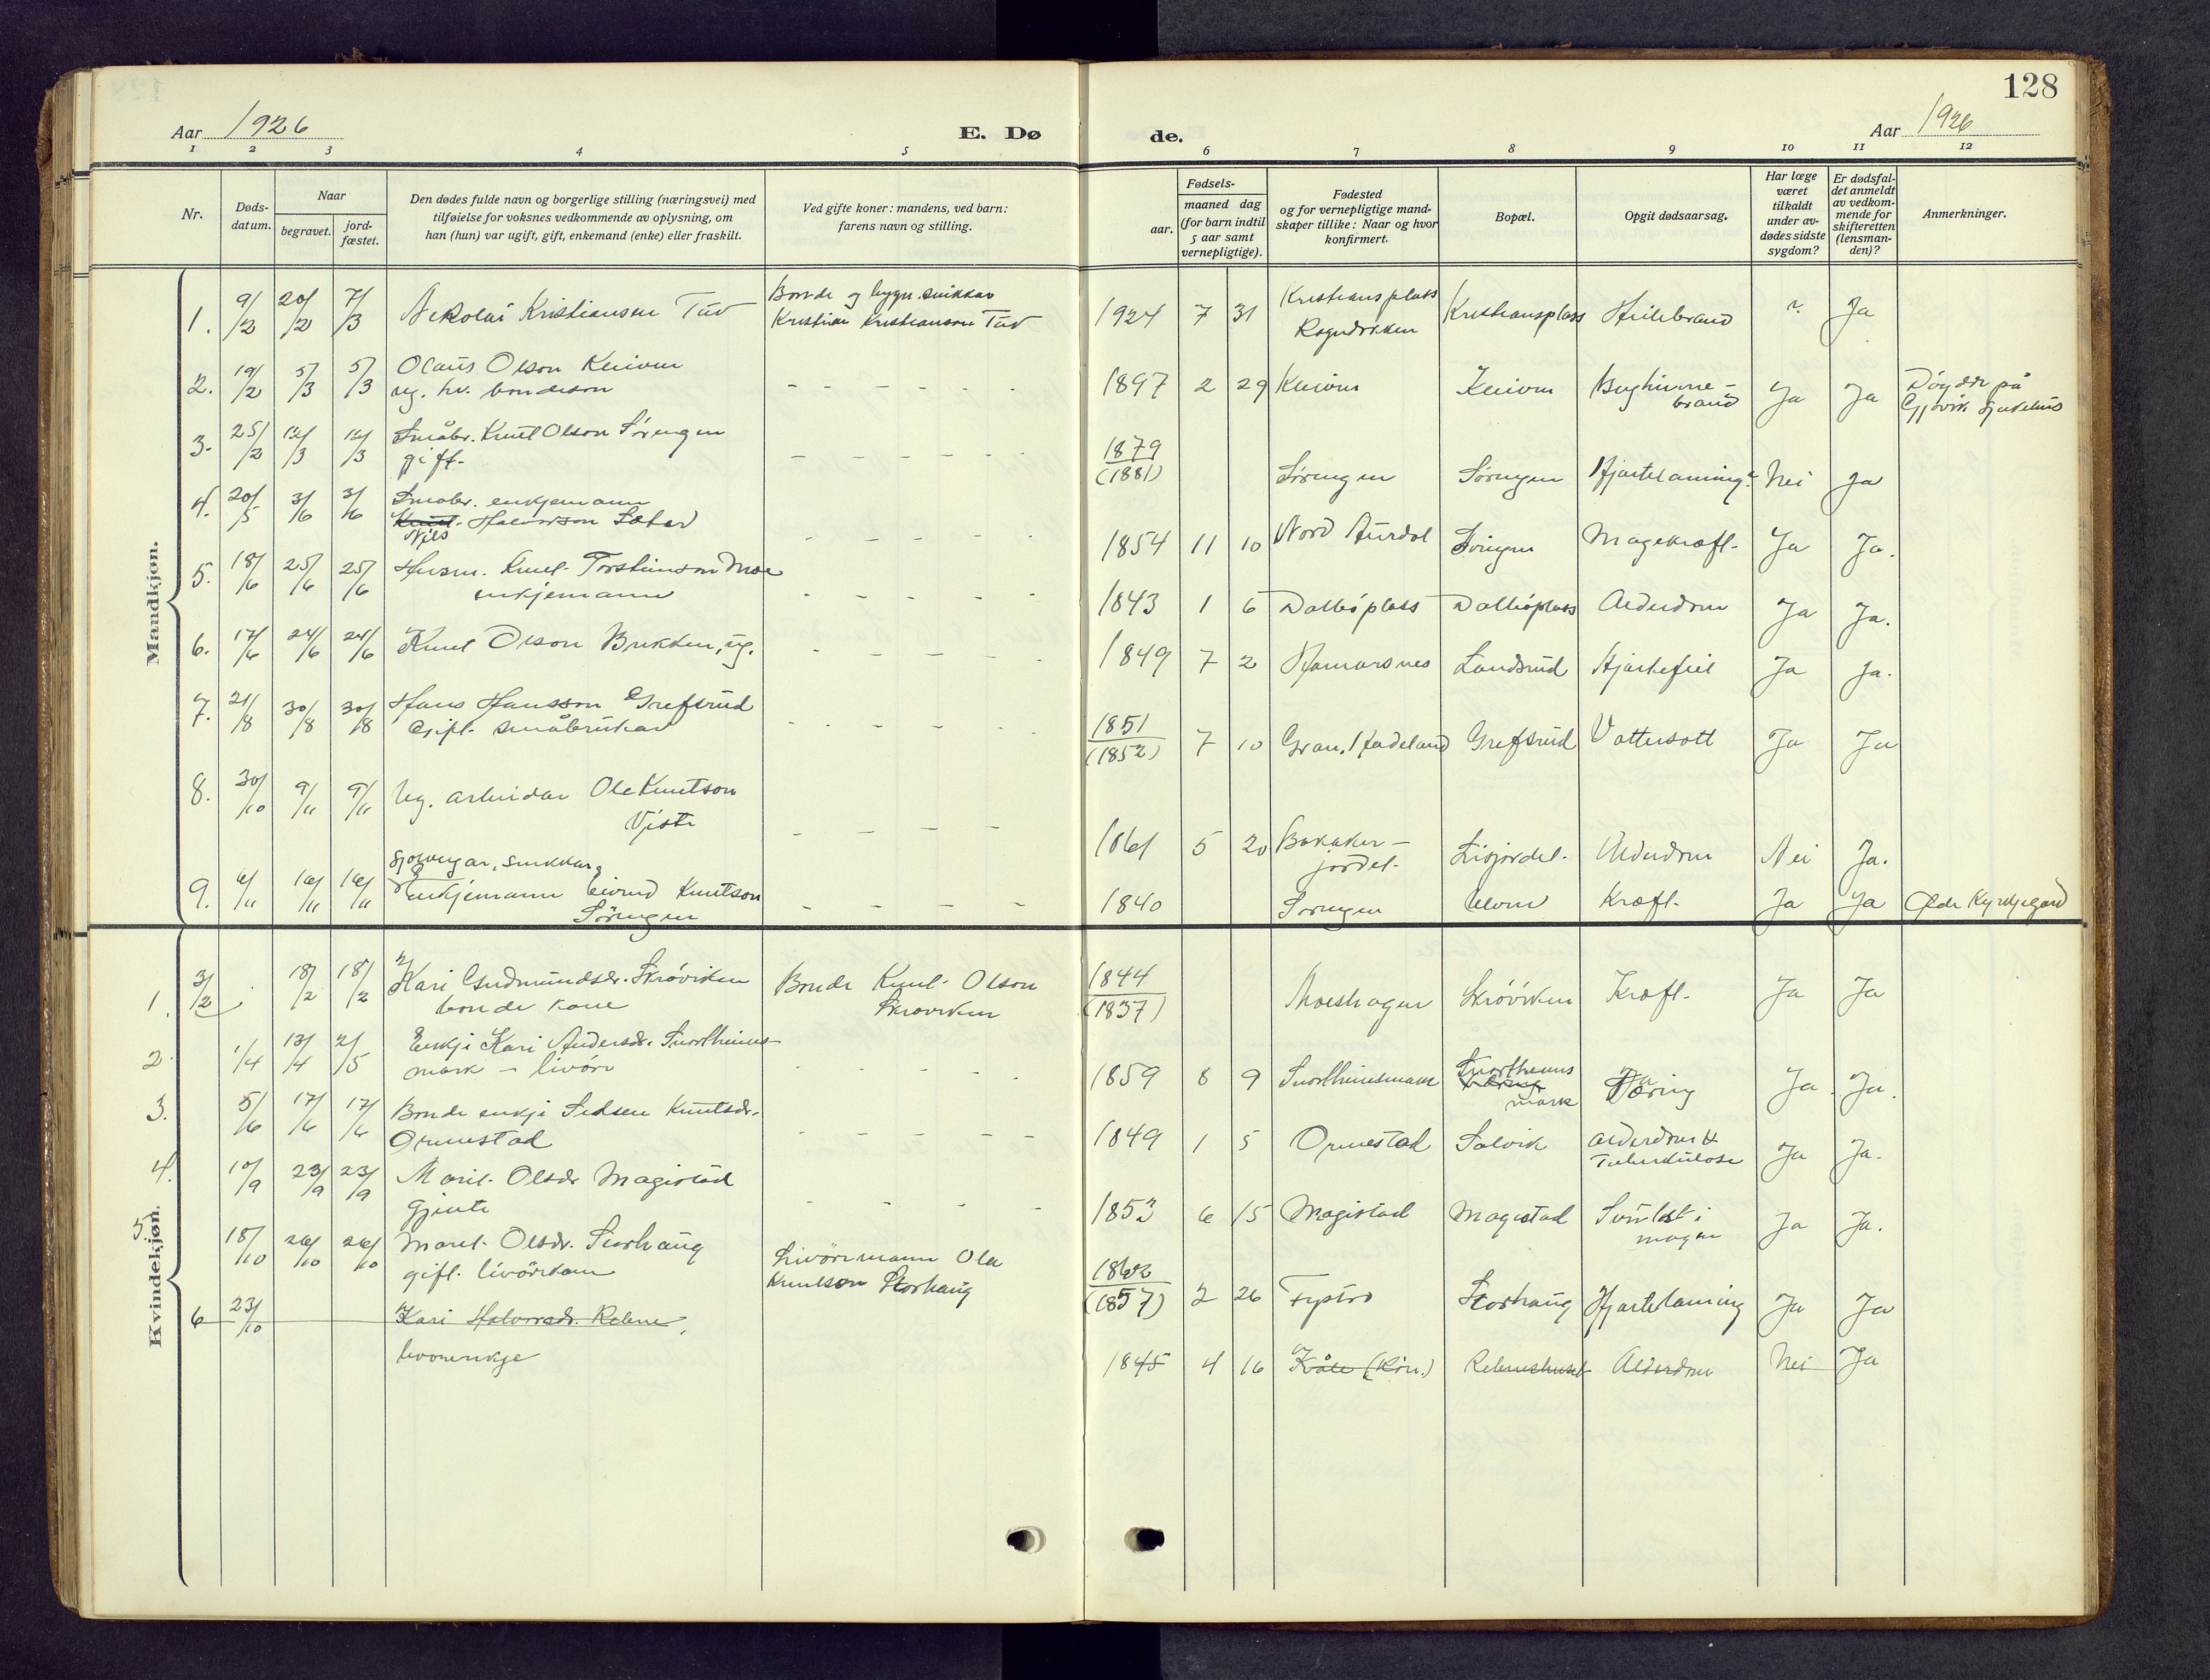 128
Aar 1926
E. Dø
de.
Aar 1926
1 2 3 4 5 6 7 8 9 10 11 12
Nr.
Døds-
datum.
Naar
begravet.
jord-
fæstet.
Den dødes fulde navn og borgerlige stilling (næringsvei) med
tilføielse for voksnes vedkommende av oplysning, om
han (hun) var ugift, gift, enkemand (enke) eller fraskilt.
Ved gifte koner: mandens, ved barn:
farens navn og stilling.
Fødsels-
aar.
maaned dag
(for barn indtil
5 aar samt
vernepligtige).
Fødested
og for vernepligtige mand-
skaper tillike: Naar og hvor
konfirmert.
Bopæl.
Opgit dødsaarsag.
Har læge
været
tilkaldt
under av-
dødes sidste
sygdom?
Er dødsfal-
det anmeldt
av vedkom-
mende for
skifteretten
(lensman-
den)?
Anmerkninger.
Mandkjøn.
1. 9/2 20/2 7/3 Nikolai Kristiansen
Bonde og bygn. snikkar
Kristian Kristiansen
1924 7 31 Kristiansplass
Kristiansplass ? Ja
2. 19/2 5/3 5/3 Olaus Olson
ug. bondeson
1897 2 29 Ja Ja
på
Gjøvik sjukehus
3. 25/2 12/3 12/3 Småbr. Knut Olson Søringen
gift.
1879
(1881)
Søringen Søringen Hjartelaming? Nei Ja
4. 20/5 3/6 3/6 Småbr. enkjemann
Knut Halvorson Sæter
Nils
1854 11 10 Nord Aurdal Søringen Magekræft. Ja Ja.
5. 18/6 25/6 25/6 Husm. Knut Torsteinson Moe
enkjemann
1843 1 6 Dalbøplass Dalbøplass Alderdom Ja Ja.
6. 17/6 24/6 24/6 Knut Olson Brekken, ug.
1849 7 2 Hamarsnes Landsrud Hjartefeil Ja Ja.
7. 21/8 30/8 30/8 Hans Hansson Grefsrud
Gift. småbrukar
1851
(1852)
7 10 Gran, Hadeland Grefsrud Vattersott Ja Ja
8. 30/10 9/11 9/11 Ug. arbeidar Ole Knutson
1861 5 20
jordet. Alderdom Nei Ja.
9. 6/11 16/11 16/11 snikkar,
enkjemann Eivind Knutson
Søringen
1840 Søringen Ulven Kræft. Ja Ja Kyrkjegard
Kvindekjøn.
1. 3/2 18/2 18/2 Kari Gudmundsdr. Skrøviken
bonde kone
Bonde Knut Olson
Skrøviken
1844
(1837)
Moeshagen Skrøviken Kræft. Ja Ja
2. 1/4 13/4 2/5 Enkje Kari Andersdr. Snortheims-
mark - livøre
1859 8 9 Snortheimsmark Snortheims
mark
Tæring Ja. Ja.
3. 5/6 17/6 17/6 Bonde enkje Knutsdr.
Ormestad
1849 1 5 Ormestad Solvik Alderdom &
Tuberkulose
Ja Ja.
4. 10/9 23/9 23/9 Marit Olsdr. Magistad
Gjente
1853 6 15 Magistad Magistad
magen
Ja Ja.
5. 18/10 26/10 26/10 Marit Olsdr. Storhaug
gift. livørekone
Livøremann Ola
Knutson Storhaug
1862
(1857)
2 26 Storhaug Hjartelaming Ja Ja
6 23/10 Kari Halvorsdr. Robne,
livøreenkje
1845 4 16 Robneshuset Alderdom Nei Ja